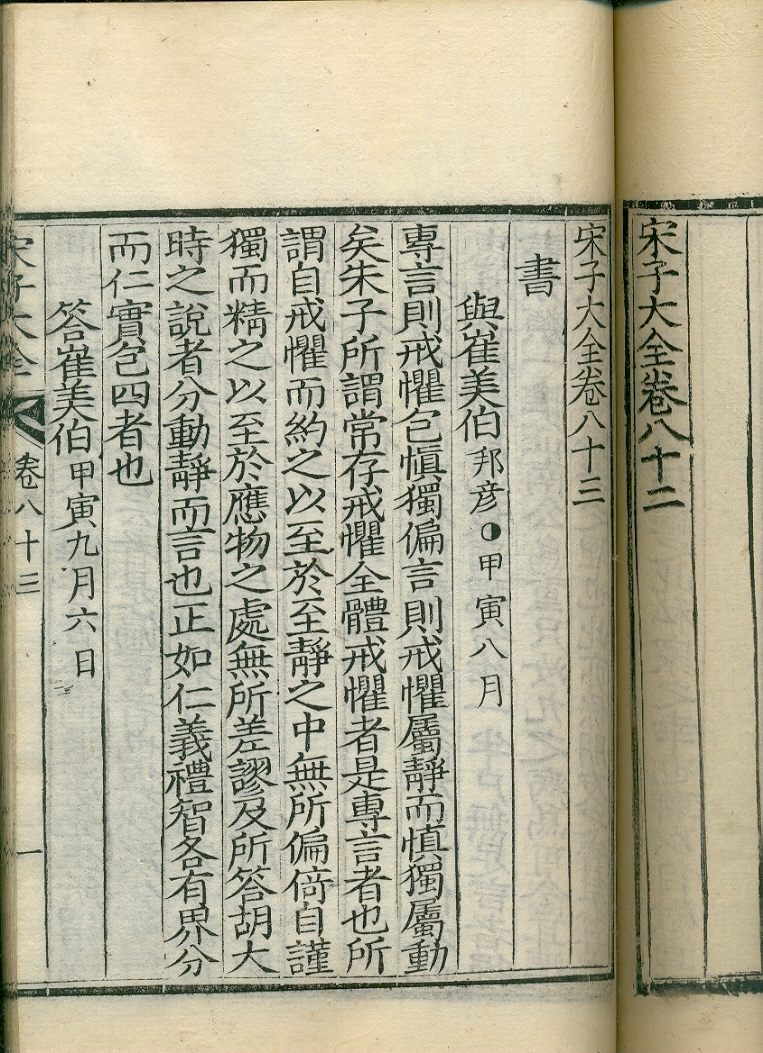 宋子大全卷八十二
宋子大全卷八十三
書
與崔美伯邦彦◑甲寅八月
專言則戒懼包愼獨偏言則戒懼屬靜而愼獨屬動
矣朱子所謂常存戒懼全體戒懼者是專言者也所
謂自戒懼而約之以至於至靜之中無所偏倚自謹
獨而精之以至於應物之處無所差謬及所答胡大
時之說者分動靜而言也正如仁義禮智各有界分
而仁實包四者也
答崔美伯甲寅九月六日
宋子大全 卷八十三 一